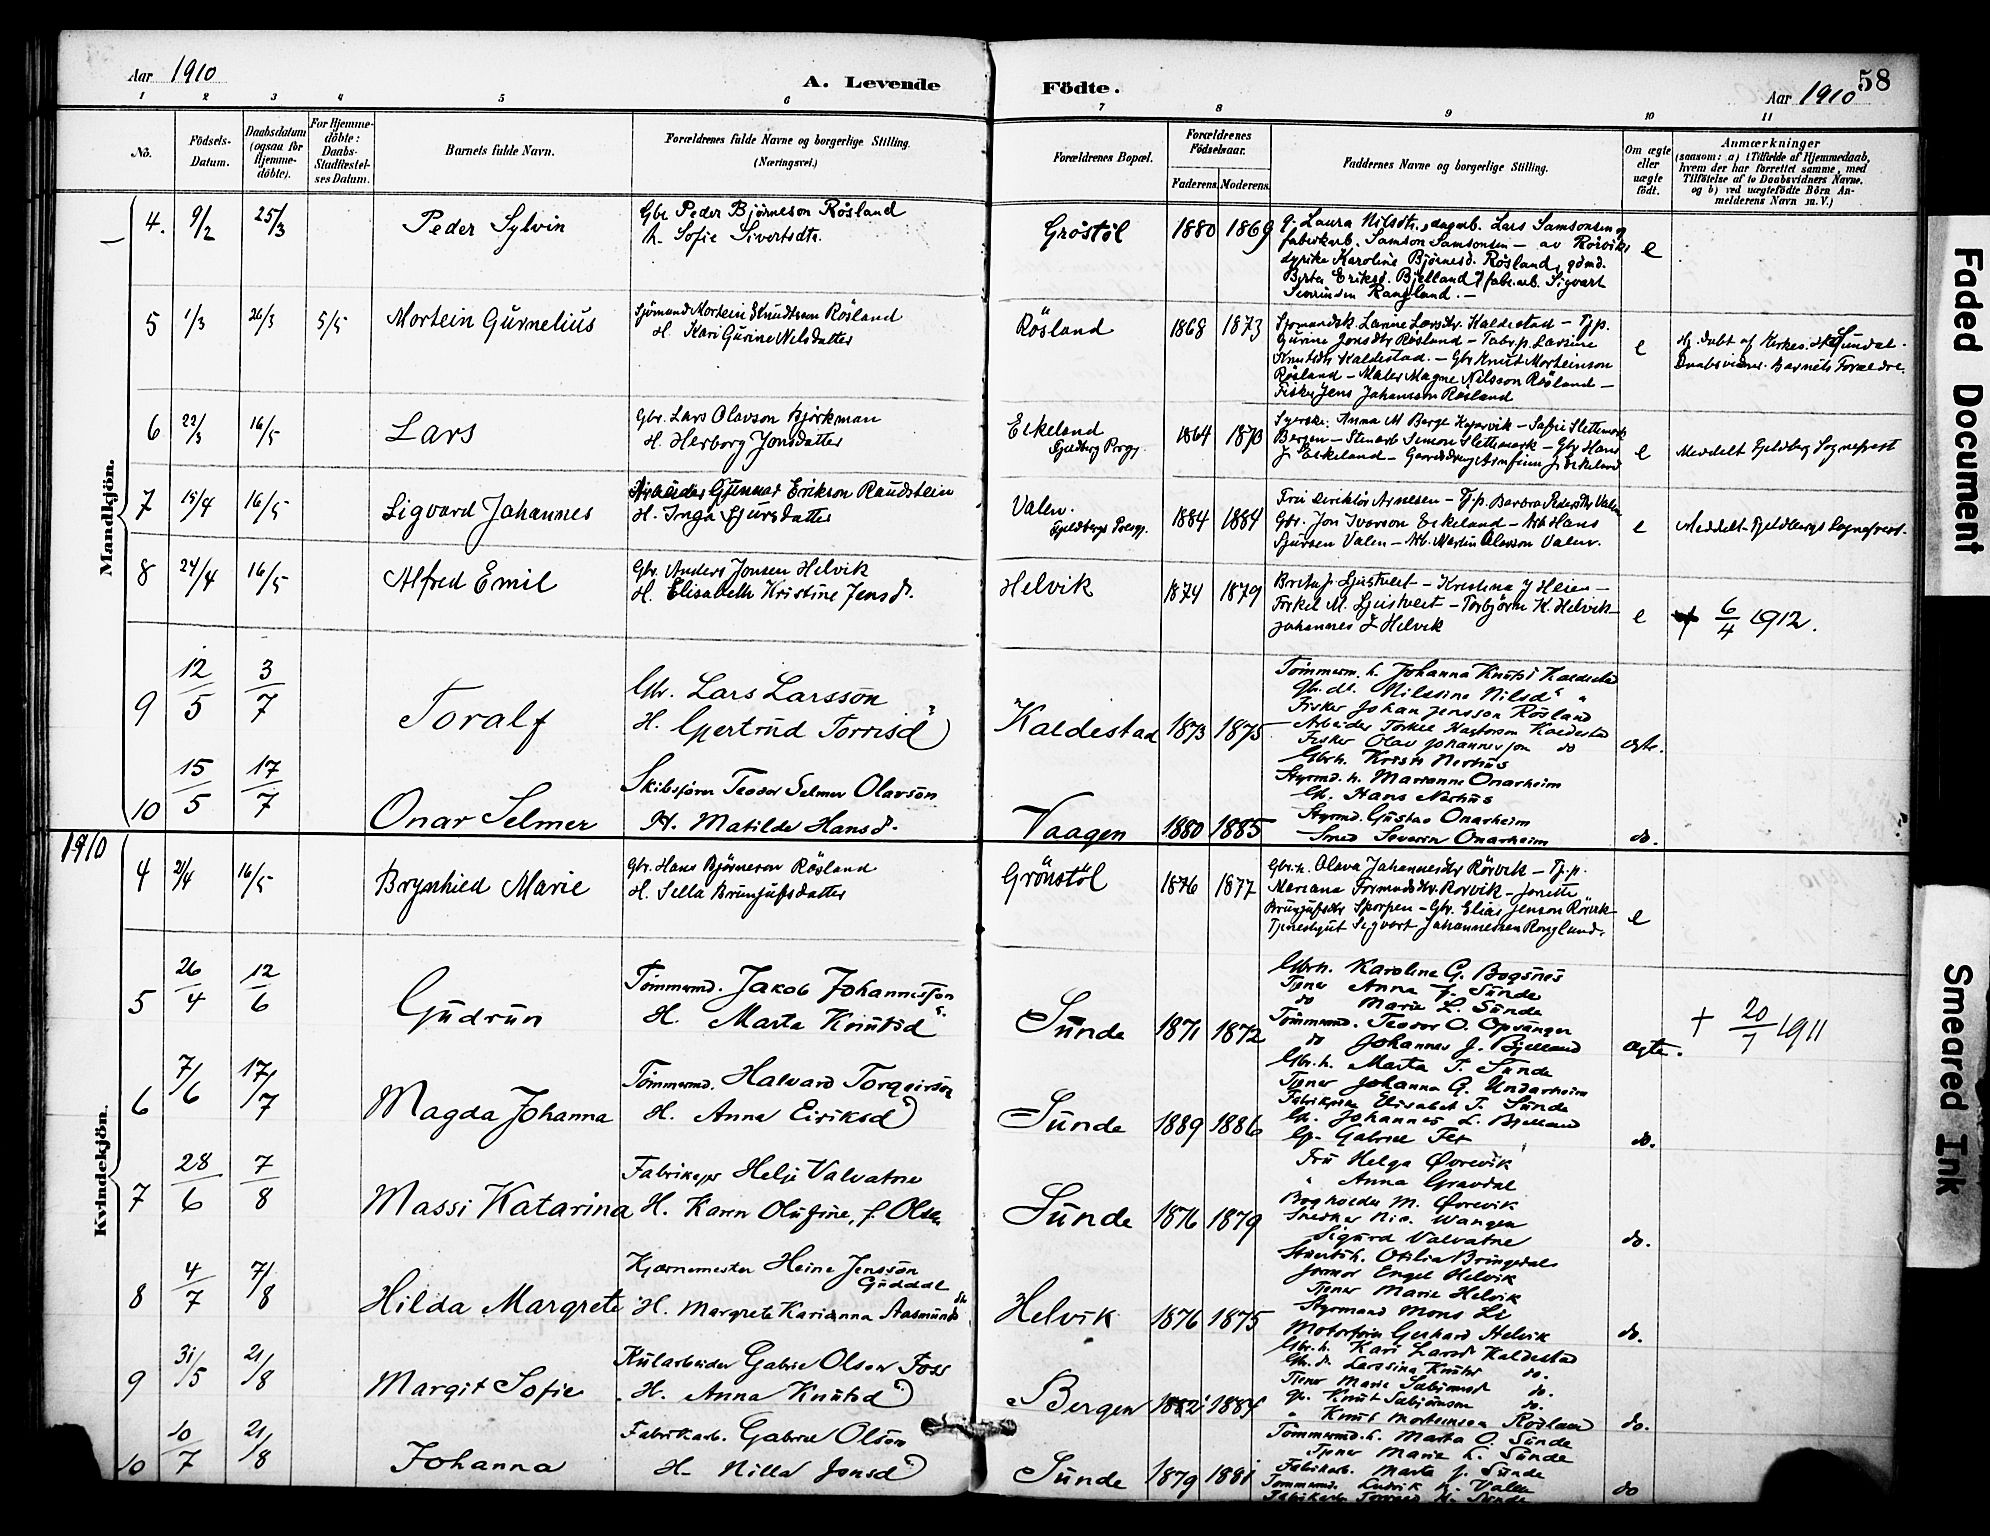 Aar 1910
A. Levende Födte.
Aar 1910 58
1 2 3 4 5 6 7 8 9 10 11
No. Födsels-Datum. Daabsdatum (ogsaa for Hjemme-döbte). For Hjemme-döbte: Daabs-Stadfæstel-ses Datum. Barnets fulde Navn. Forældrenes fulde Navne og borgerlige Stilling. (Næringsvei.) Forældrenes Bopæl. Forældrenes Födselsaar. Faderens. Moderens. Faddernes Navne og borgerlige Stilling. Om ægte eller uægte födt. Anmærkninger (saasom: a) i Tilfælde af Hjemmedaab, hvem der har forrettet samme, med Tilföielse af to Daabsvidners Navne, og b) ved uægtefödte Börn An-melderens Navn m. V.)
Mandkjön.
4. 9/2 25/3 Peder Sylvin
Gbr. Peder Björneson Rösland
h. Sofie Sivertsdtr.
1880 1869
g. Laura Nilsdtr., dagarb. Lars Samsonsen og
fabrikarb. Samson Samsonsen – av Rörvik,
dyrike Karoline Björnesd. Rösland, gdmd.
Berta Eriksd. Bjelland, fabr.arb. Sigvart
Rangland. –
e
5 1/3 26/3 5/5 Mortein Gurnelius
Sjömand Mortein Knudtson Rösland
H. Kari Gurine Nilsdatter
Rösland 1868 1873
Sjömandsk. Lanne Larsdtr. Kaldestad – Tj.p.
Gurine Jonsdtr Rösland – Fabr.p. Lavine
Knutsdtr Kaldestad. – Gbr Knut Morteinson
Rösland – Maler Magne Nilsson Rösland –
Fisker Jens Johanson Rösland
e
Hj. döbt af Kirkes.
Daabsvidner. Barnets Forældre.
6 22/3 16/5 Lars
Gbr. Lars Olavson Björkman
H. Herborg Jonsdatter
Eikeland
Fjeldberg Prgj.
1864 1870
Syerske. Anna M Berge – Sofie Slettemark
Bergen – Simon Slettemark – Gbr Hans
J. Eikeland – Arnfinn J. Eikeland
e
Meddelt Fjeldberg Sogneprest
7 15/4 16/5 Sigvard Johannes
Arbeider Gunnar Erikson Raudstein
H. Inga Sjursdatter
Valen.
Fjeldbergs Presgj.
1884 1884
Fru Direktör Arnesen – Tj.p. Barbra Pedersdtr Valen
Gbr. Jon Iverson Eikeland – Arb Hans
Sjursen Valen – Arb. Martin Olavson Valen.
e
Meddelt Fjeldbergs Sogneprest.
8 24/4 16/5 Alfred Emil
Gbr. Anders Jonsen Helvik
H. Elisabeth Kristine Jensd.
Helvik 1874 1879
Brita J. Ljustveit – Kristina J Heien –
Torkel M. Ljustveit – Torbjörn K. Helvik –
Johannes L Helvik
e
+ 6/4 1912.
9 12/5 3/7 Toralf
Gbr. Lars Larsson
H. Gjertrud Torrisd.
Kaldestad 1873 1875
Tömmerm. h. Johanna Knuts. Kaldestad
Gbr. dt. Nilssine Nilsd. "
Fisker Johan Jensson Rösland
Arbeider Torkel Kaldestad
Fisker Olav Johannesson do
ægte.
10 15/5 17/7 Onar Selmer
Skibsförer Teodor Selmer Olavson
H. Matilde Hansd.
Vaagen 1880 1885
Gbrh. Kristi Nerhus
Styrmd. h. Marianne Onarheim
Gbr. Hans Nerhus
Styrmd. Gustav Onarheim
Smed Severin Onarheim
do.
1910
Kvindekjön.
4 21/4 16/5 Brynhild Marie
Gbr. Hans Björneson Rösland
H. Sella Brunjulfsdatter
Grönstöl 1876 1877
Gbr.h. Olava Johannesdtr Rörvik – Tj.p.
Mariana Tormodsdtr. Rörvik – Jorette
Brunjulfsdtr Skorpen – Gbr. Elias Jenson Rörvik –
Tjenestgut Sigvart Johannessen Ranglund.
e
5 26/4 12/6 Gudrun
Tömmermd. Jakob Johannesson
H. Marta Knutsd.
Sunde 1871 1872
Gbrh. Karoline G. Bogsnes
Tjener Anna J. Sunde
do Marie L. Sunde
Tömmermd. Teodor O. Opsanger
do Johannes J. Bjelland
ægte.
+ 20/7 1911
6 7/6 17/7 Magda Johanna
Tömmermd. Halvard Torgeirson
H. Anna Eiriksd.
Sunde 1889 1886
Gbr.h. Marta T. Sunde
Tjener Johanna G. Undarheim
Elisabet T. Sunde
Gbr. Johannes L. Bjelland
Gbr. Gabriel Tet
do.
7 28/6 7/8 Massi Katarina
Helje Valvatne
H. Karen Olufine, f. Olsen
Sunde 1876 1879
Fru Helga Øvrevik
" Anna Gravdal
Bogholder M. Øvrevik
Snedker Nic. Wangen
Sigurd Valvatne
do.
8 4/7 7/8 Hilda Margrete
Kjörnemester Heine Jensson
Guddal
H. Margrete Karianna Aasmundsdtr
Helvik 1876 1875
Stuerts h. Otilia Bringedal
Jormor Engel Helvik
Tjener Marie Helvik
Styrmand Mons Li
Motorförer Gerhard Helvik
do.
9 31/5 21/8 Margit Sofie
Kularbeider Gabriel Olson Foss
H. Anna Knutsd.
Bergen 1882 1884
Gbr.h. Kari Larsd. Kaldestad
Gbr. d. Larssina Knutsd do.
Tjener Marie Sæbjörnsd do.
Gbr. Knut Sæbjörnson do.
" Knut Morteinson Rösland
do.
10 10/7 21/8 Johanna
Fabrikarb. Gabriel Olson
H. Nilla Jonsd.
Sunde 1879 1881
Tömmermd. h. Marta O. Sunde
Tjener Marie L. Sunde
Fabrikarb. Marta J. Sunde
Tömmermd. Ludvik K. Valen
do
Faded Document
Smeared Ink